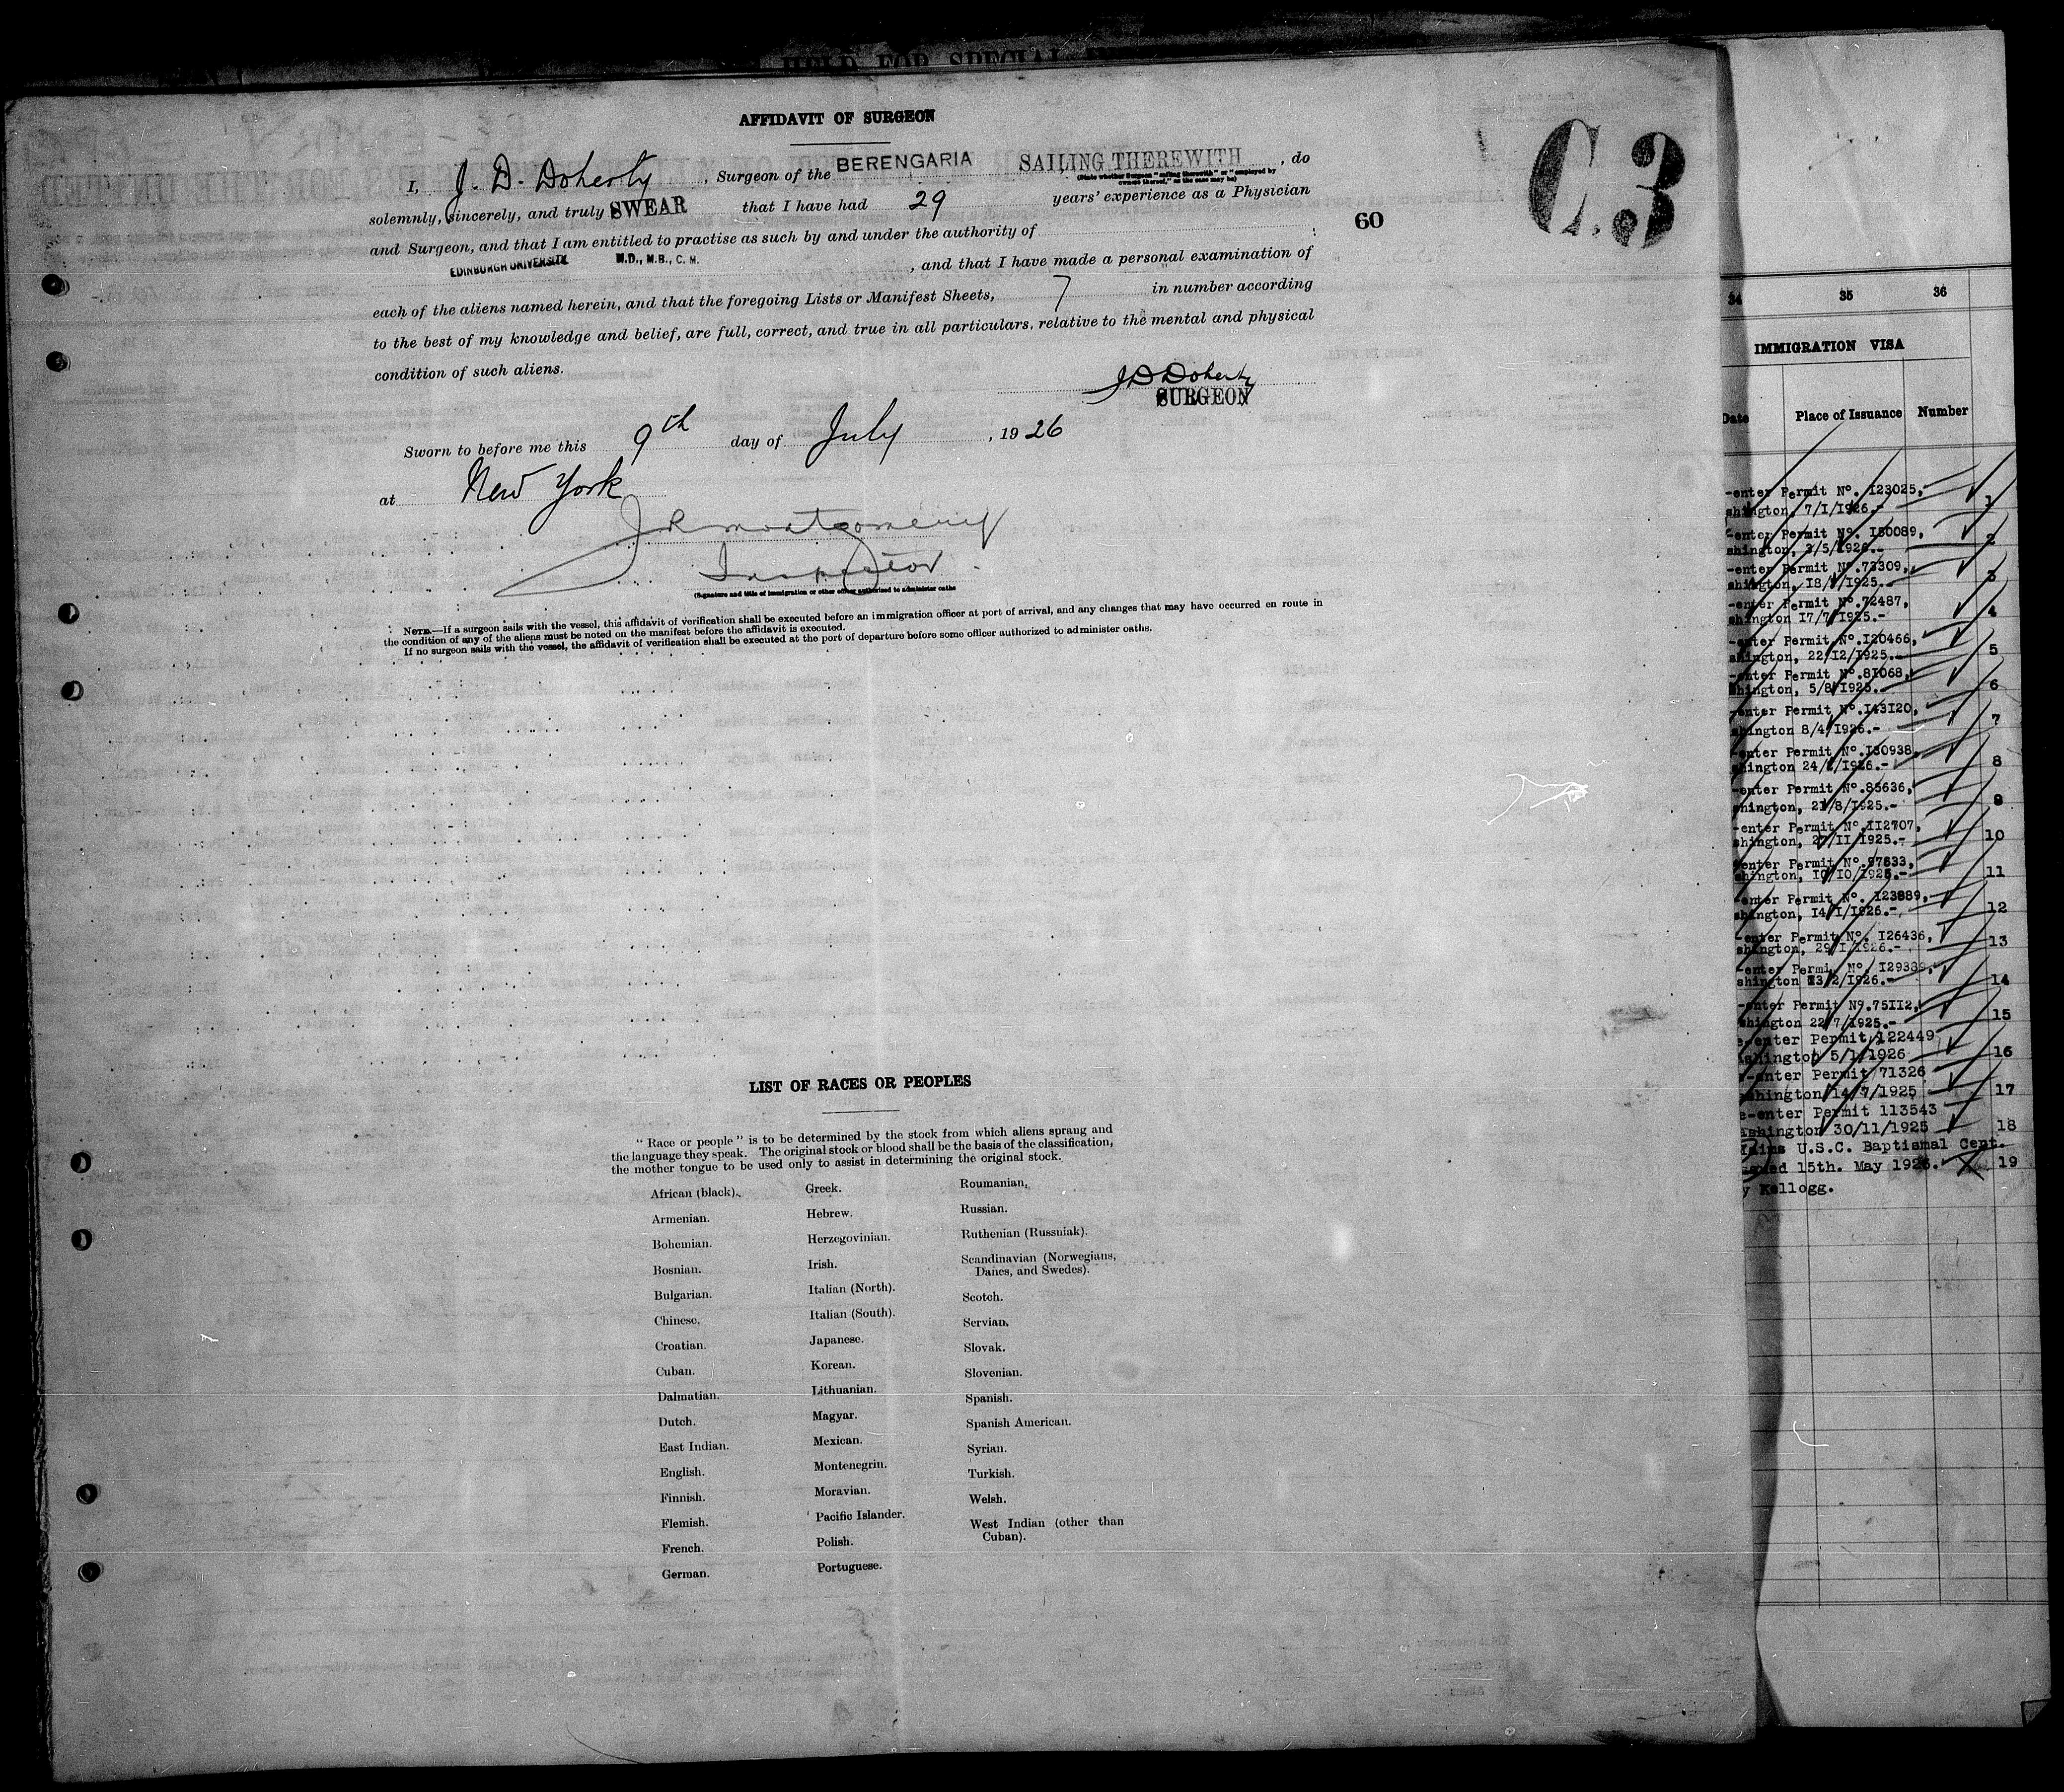 HELD FOR SPECIAL
AFFIDAVIT OF SURGEON
I, J. D. Doherty, Surgeon of the BERENGARIA SAILING THEREWITH, do
(State whether Surgeon "sailing therewith" or "employed by
owners thereof," as the case may be)
solemnly, sincerely, and truly SWEAR that I have had 29 years' experience as a Physician
and Surgeon, and that I am entitled to practise as such by and under the authority of
EDINBURGH UNIVERSITY M.D., M.B., C.M. , and that I have made a personal examination of
each of the aliens named herein, and that the foregoing Lists or Manifest Sheets, 7 in number according
to the best of my knowledge and belief, are full, correct, and true in all particulars, relative to the mental and physical
condition of such aliens.
J D Doherty
SURGEON
60
C.3
Sworn to before me this 9th day of July, 1926
at New York
J R Montgomery
Inspector
(Signature and title of immigration or other officer authorized to administer oaths
NOTE.—If a surgeon sails with the vessel, this affidavit of verification shall be executed before an immigration officer at port of arrival, and any changes that may have occurred en route in
the condition of any of the aliens must be noted on the manifest before the affidavit is executed.
If no surgeon sails with the vessel, the affidavit of verification shall be executed at the port of departure before some officer authorized to administer oaths.
LIST OF RACES OR PEOPLES
"Race or people" is to be determined by the stock from which aliens sprang and
the language they speak. The original stock or blood shall be the basis of the classification,
the mother tongue to be used only to assist in determining the original stock.
African (black).
Armenian.
Bohemian.
Bosnian.
Bulgarian.
Chinese.
Croatian.
Cuban.
Dalmatian.
Dutch.
East Indian.
English.
Finnish.
Flemish.
French.
German.
Greek.
Hebrew.
Herzegovinian.
Irish.
Italian (North).
Italian (South).
Japanese.
Korean.
Lithuanian.
Magyar.
Mexican.
Montenegrin.
Moravian.
Pacific Islander.
Polish.
Portuguese.
Roumanian.
Russian.
Ruthenian (Russniak).
Scandinavian (Norwegians,
Danes, and Swedes).
Scotch.
Servian.
Slovak.
Slovenian.
Spanish.
Spanish American.
Syrian.
Turkish.
Welsh.
West Indian (other than
Cuban).
34 35 36
IMMIGRATION VISA
Date Place of Issuance Number
-enter Permit No. I23025,
shington, 7/I/1926.- 1
-enter Permit No. I50089,
shington, 3/5/1926.- 2
-enter Permit No.73309,
shington, I8/7/I925.- 3
-enter Permit No.72487,
shington I7/7/I925.- 4
-enter Permit No.I20466,
shington, 22/I2/I925.- 5
-enter Permit No.8I068,
hington, 5/8/I925.- 6
-enter Permit No.I43I20,
shington 8/4/I926.- 7
-enter Permit No.I30938,
hington 24/2/I926.- 8
-enter Permit No.85636,
hington, 2I/8/I925.- 9
-enter Permit No.II2707,
hington, 27/II/I925.- 10
-enter Permit No.97633,
hington, I0/I0/I925.- 11
-enter Permit No. I23889,
shington, I4/I/I926.- 12
-enter Permit No. I26436,
shington, 29/I/I926.- 13
-enter Permi No. I29339,
shington I3/2/I926.- 14
-enter Permit No.75II2,
shington 22/7/I925.- 15
e-enter Permit 122449
ashington 5/1/1926 16
e-enter Permit 71326
ashington 14/7/1925 17
e-enter Permit 113543
ashington 30/11/1925 18
U.S.C. Baptismal Cert.
15th. May 1926. 19
y Kellogg.